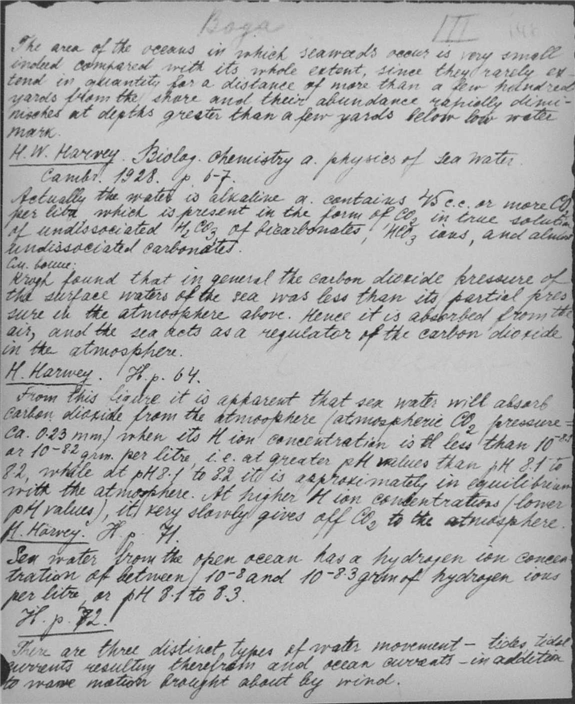 Вода III
The area of the oceans in which seaweeds occur is very small
indeed compared with its whole extent, since they rarely ex-
tend in quantity for a distance of more than a few hundred
yards from the shore and their abundance rapidly dimi-
nishes at depths greater than a few yards below low water
mark.
H.W. Harvey. Biolog. chemistry a. physics of sea water.
Cambr. 1928. p. 6-7.
Actually the water is alkaline a. contains 45 c.c. or more CO2
per litre, which is present in the form of CO2 in true solution
of undissociated H2CO3 of bicarbonates, HCO3 ions, and almost
undissociated carbonates.
См. выше.
Krogh found that in general the carbon dioxide pressure of
the surface waters of the sea was less than its partial pres-
sure in the atmosphere above. Hence it is absorbed from the
air, and the sea acts as a regulator of the carbon dioxide
in the atmosphere.
H. Harvey. H. p. 64.
From this it is apparent that sea water will absorb
carbon dioxide from the atmosphere (atmospheric CO2 pressure =
ca. 0.23 mm) when its H ion concentration is less than
or 10-82 grm. per litre, i.e. at greater pH values than pH 8.1 to
8.2, while at pH 8.1 to 8.2 it is approximately in equilibrium
with the atmosphere. At higher H ion concentrations (lower
pH values), it very slowly gives off CO2 to the atmosphere.
H. Harvey. H. p. 71.
Sea water from the open ocean has a hydrogen ion concen-
tration of between 10-8 and 10-8.3 grm of hydrogen ions
per litre, or pH 8.1 to 8.3.
H. p. 72.
There are three distinct types of water movement – tides, tidal
currents resulting therefrom and ocean currents – in addition
to wave motion brought about by wind.